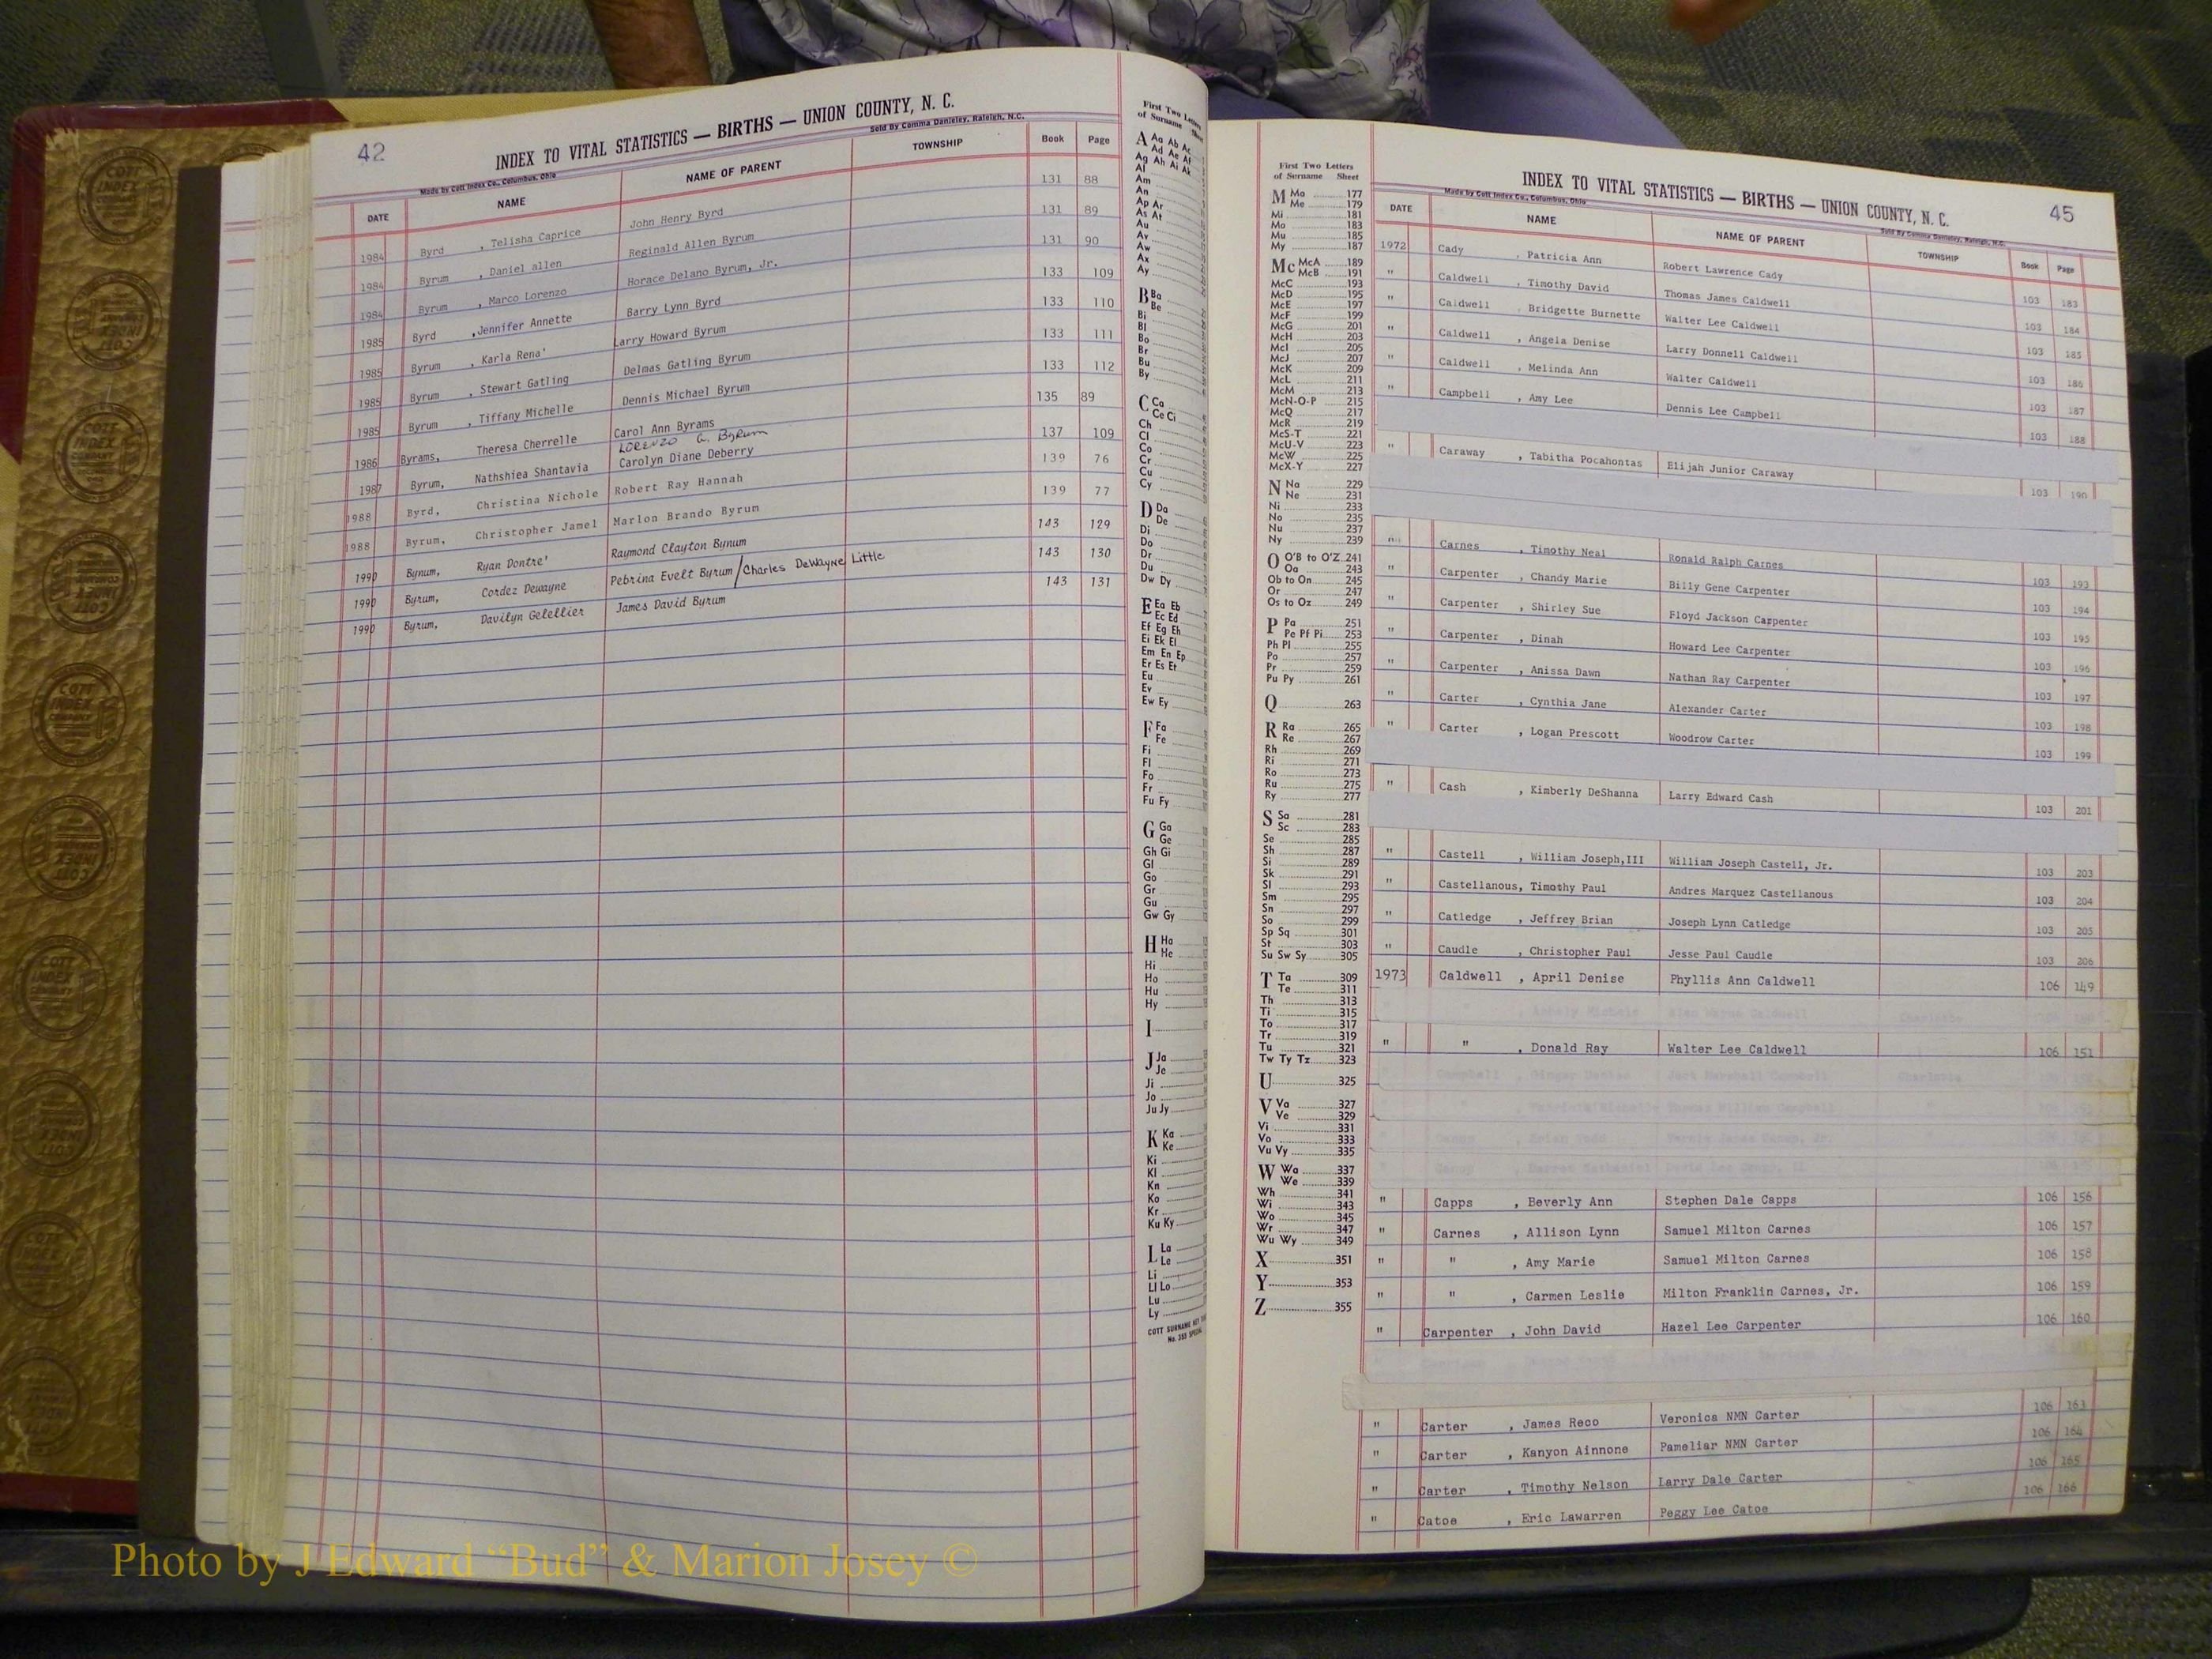 42
INDEX TO VITAL STATISTICS — BIRTHS — UNION COUNTY, N. C.
Made by Cott Index Co., Columbus, Ohio Sold By Comma Danieley, Raleigh, N.C.
DATE NAME NAME OF PARENT TOWNSHIP Book Page
1984 Byrd , Telisha Caprice John Henry Byrd 131 88
1984 Byrum , Daniel allen Reginald Allen Byrum 131 89
1984 Byrum , Marco Lorenzo Horace Delano Byrum, Jr. 131 90
1985 Byrd ,Jennifer Annette Barry Lynn Byrd 133 109
1985 Byrum , Karla Rena' Larry Howard Byrum 133 110
1985 Byrum , Stewart Gatling Delmas Gatling Byrum 133 111
1985 Byrum , Tiffany Michelle Dennis Michael Byrum 133 112
1986 Byrams, Theresa Cherrelle Carol Ann Byrams 135 89
LORENZO G. Byrum
1987 Byrum, Nathshiea Shantavia Carolyn Diane Deberry 137 109
1988 Byrd, Christina Nichole Robert Ray Hannah 139 76
1988 Byrum, Christopher Jamel Marlon Brando Byrum 139 77
1990 Bynum, Ryan Dontre' Raymond Clayton Bynum 143 129
1990 Byrum, Cordez Dewayne Pebrina Evelt Byrum / Charles DeWayne Little 143 130
1990 Byrum, Davilyn Gelellier James David Byrum 143 131
First Two Letters
of Surname
A Aa Ab Ac
Ad Ae Af
Ag Ah Ai Ak
Al
Am
An
Ap Ar
As At
Au
Av
Aw
Ax
Ay
B Ba
Be
Bi
Bl
Bo
Br
Bu
By
C Ca
Ce Ci
Ch
Cl
Co
Cr
Cu
Cy
D Da
De
Di
Do
Dr
Du
Dw Dy
E Ea Eb
Ec Ed
Ef Eg Eh
Ei Ek El
Em En Ep
Er Es Et
Eu
Ev
Ew Ey
F Fa
Fe
Fi
Fl
Fo
Fr
Fu Fy
G Ga
Ge
Gh Gi
Gl
Go
Gr
Gu
Gw Gy
H Ha
He
Hi
Ho
Hu
Hy
I
J Ja
Je
Ji
Jo
Ju Jy
K Ka
Ke
Ki
Kl
Kn
Ko
Kr
Ku Ky
L La
Le
Li
Ll Lo
Lu
Ly
COTT SURNAME KEY
No. 355 SPECIAL
First Two Letters
of Surname Sheet
M Ma 177
Me 179
Mi 181
Mo 183
Mu 185
My 187
Mc McA 189
McB 191
McC 193
McD 195
McE 197
McF 199
McG 201
McH 203
McI 205
McJ 207
McK 209
McL 211
McM 213
McN-O-P 215
McQ 217
McR 219
McS-T 221
McU-V 223
McW 225
McX-Y 227
N Na 229
Ne 231
Ni 233
No 235
Nu 237
Ny 239
O O'B to O'Z 241
Oa 243
Ob to On 245
Or 247
Os to Oz 249
P Pa 251
Pe Pf Pi 253
Ph Pl 255
Po 257
Pr 259
Pu Py 261
Q 263
R Ra 265
Re 267
Rh 269
Ri 271
Ro 273
Ru 275
Ry 277
S Sa 281
Sc 283
Se 285
Sh 287
Si 289
Sk 291
Sl 293
Sm 295
Sn 297
So 299
Sp Sq 301
St 303
Su Sw Sy 305
T Ta 309
Te 311
Th 313
Ti 315
To 317
Tr 319
Tu 321
Tw Ty Tz 323
U 325
V Va 327
Ve 329
Vi 331
Vo 333
Vu Vy 335
W Wa 337
We 339
Wh 341
Wi 343
Wo 345
Wr 347
Wu Wy 349
X 351
Y 353
Z 355
INDEX TO VITAL STATISTICS — BIRTHS — UNION COUNTY, N. C.
45
Made by Cott Index Co., Columbus, Ohio Sold By Comma Danieley, Raleigh, N.C.
DATE NAME NAME OF PARENT TOWNSHIP Book Page
1972 Cady , Patricia Ann Robert Lawrence Cady 103 183
" Caldwell , Timothy David Thomas James Caldwell 103 184
" Caldwell , Bridgette Burnette Walter Lee Caldwell 103 185
" Caldwell , Angela Denise Larry Donnell Caldwell 103 186
" Caldwell , Melinda Ann Walter Caldwell 103 187
" Campbell , Amy Lee Dennis Lee Campbell 103 188
" Caraway , Tabitha Pocahontas Elijah Junior Caraway 103 190
" Carnes , Timothy Neal Ronald Ralph Carnes 103 193
" Carpenter , Chandy Marie Billy Gene Carpenter 103 194
" Carpenter , Shirley Sue Floyd Jackson Carpenter 103 195
" Carpenter , Dinah Howard Lee Carpenter 103 196
" Carpenter , Anissa Dawn Nathan Ray Carpenter 103 197
" Carter , Cynthia Jane Alexander Carter 103 198
" Carter , Logan Prescott Woodrow Carter 103 199
" Cash , Kimberly DeShanna Larry Edward Cash 103 201
" Castell , William Joseph,III William Joseph Castell, Jr. 103 203
" Castellanous, Timothy Paul Andres Marquez Castellanous 103 204
" Catledge , Jeffrey Brian Joseph Lynn Catledge 103 205
" Caudle , Christopher Paul Jesse Paul Caudle 103 206
1973 Caldwell , April Denise Phyllis Ann Caldwell 106 149
" " , Donald Ray Walter Lee Caldwell 106 151
" Capps , Beverly Ann Stephen Dale Capps 106 156
" Carnes , Allison Lynn Samuel Milton Carnes 106 157
" " , Amy Marie Samuel Milton Carnes 106 158
" " , Carmen Leslie Milton Franklin Carnes, Jr. 106 159
" Carpenter , John David Hazel Lee Carpenter 106 160
" Carter , James Reco Veronica NMN Carter 106 163
" Carter , Kanyon Ainnone Pameliar NMN Carter 106 164
" Carter , Timothy Nelson Larry Dale Carter 106 165
" Catoe , Eric Lawarren Peggy Lee Catoe 106 166
Photo by J Edward “Bud” & Marion Josey ©